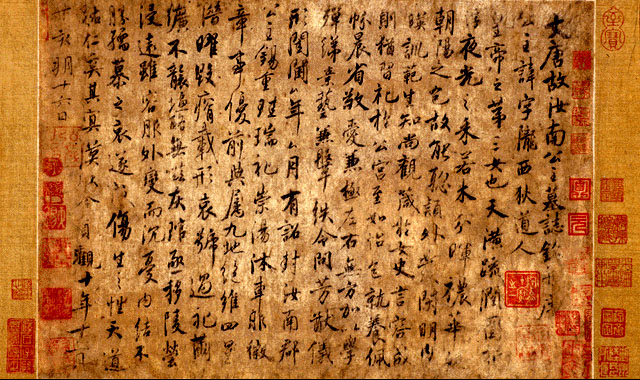 大唐故汝南公主墓誌銘并序
公主諱字隴西狄道人
皇帝之第三女也天潢疏潤圓折
夜光之采若木分暉穠華
朝陽之色故能聰穎外發閑明內
暎訓範生知尚觀箴於女史言容成
則猶習礼於公宮至如怡色就養佩
帉晨省敬愛兼極左右無方加以學
殫綈素藝兼鞶紩令問芳猷儀
形閨閫年月有詔封汝南郡
公主錫重珪瑞礼崇湯沐車服徽
章事優前典屬九地絕維四星
潛曜毀瘠載形哀號過礼繭
纊不襲塩酪無嗞灰琯亟移陵塋
浸遠雖容服外變而沉憂內結不
勝孺慕之哀遂成傷生之性天道
祐仁奚其冥漠以今貞觀十年十一
丁亥朔十六日